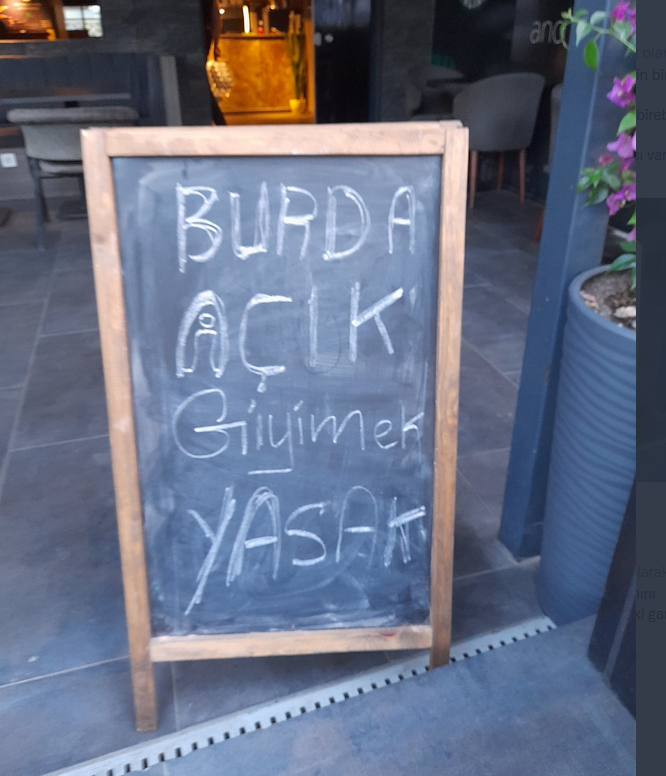 BURDA
AÇIK
Giyimek
YASAK